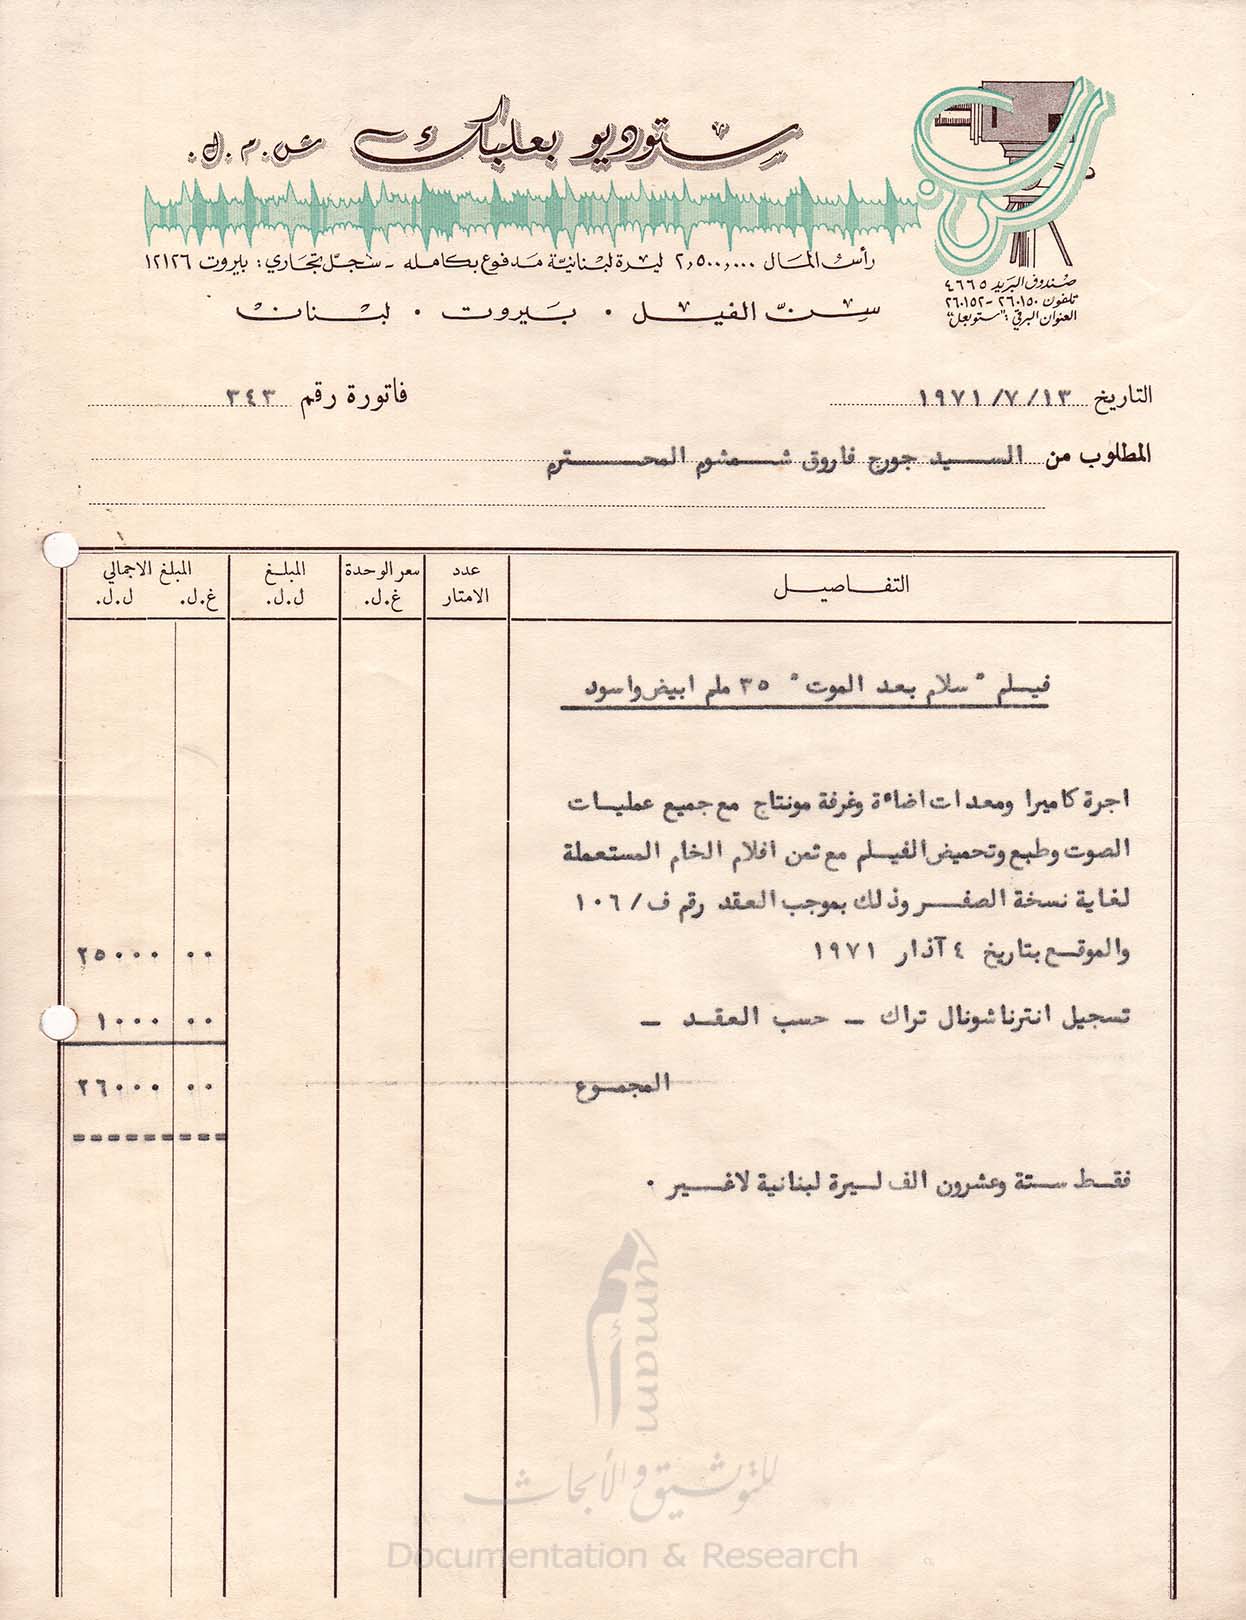 ستوديو بعلبك ش.م.ل.
رأس المال ٢,٥٠٠,٠٠٠ ليرة لبنانيّة مدفوع بكامله - سجلّ تجاري: بيروت ١٢١٢٦
سنّ الفيل . بيروت . لبنان
صندوق البريد ٤٦٦٥
تلفون ٢٦٠١٥٠ - ٢٦٠١٥٢
العنوان البرقي: "ستوبعل"
التاريخ ١٩٧١/٧/١٣
فاتورة رقم ٣٤٣
المطلوب من السيد جورج فاروق شمشوم المحترم
التفاصيل
عدد الامتار
سعر الوحدة غ.ل.
المبلغ ل.ل.
المبلغ الاجمالي
غ.ل. ل.ل.
فيلم "سلام بعد الموت" ٣٥ ملم ابيض واسود
اجرة كاميرا ومعدات اضاءة وغرفة مونتاج مع جميع عمليات
الصوت وطبع وتحميض الفيلم مع ثمن افلام الخام المستعملة
لغاية نسخة الصفر وذلك بموجب العقد رقم ف/١٠٦
والموقع بتاريخ ٤ آذار ١٩٧١ ٠٠ ٢٥٠٠٠
تسجيل انترناشونال تراك - حسب العقد - ٠٠ ١٠٠٠
المجموع ٠٠ ٢٦٠٠٠
فقط ستة وعشرون الف ليرة لبنانية لاغير .
أمم
umam
للتوثيق والأبحاث
Documentation & Research